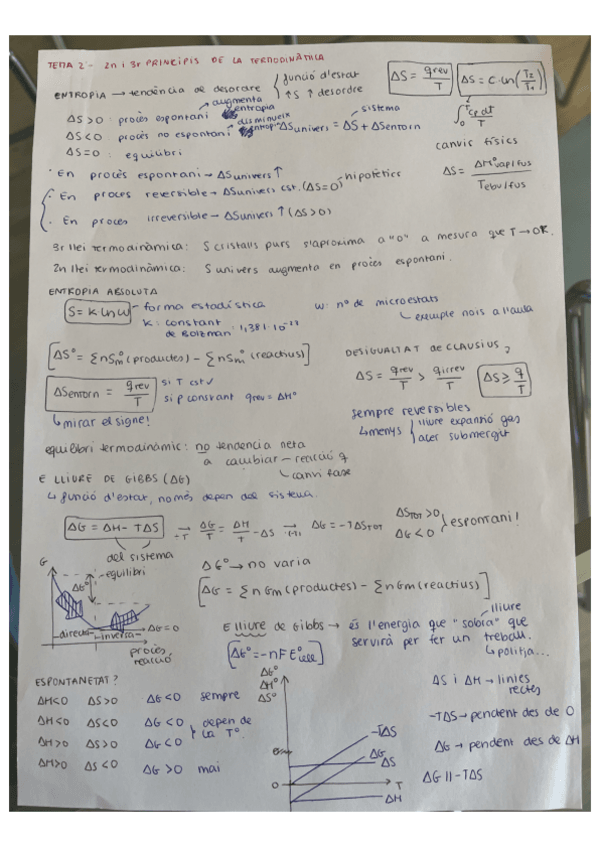 TEMA 2 - 2n i 3r PRINCIPIS DE LA TERMODINÀMICA
ENTROPIA → tendència de desordre
funció d'estat
↑S ↑ desordre
ΔS = qrev/T
ΔS = C·ln(T2/T1)
∫₀ᵀ Cp dT/T
ΔS>0 : procés espontani
augmenta entropia
ΔS<0 procés no espontani
disminueix entropia
ΔSunivers = ΔS + ΔSentorn
sistema
ΔS=0 : equilibri
canvis físics
ΔS = ΔHºvap/fus / Tebu/fus
· En procés espontani → ΔSunivers ↑
· En proces reversible → ΔSunivers cst. (ΔS=0)
hipotètic
· En procés irreversible → ΔSunivers ↑ (ΔS>0)
3r llei termodinàmica: S cristalls purs s'aproxima a "0" a mesura que T→0K.
2n llei termodinàmica: S univers augmenta en procés espontani.
ENTROPIA ABSOLUTA
S = K ln W - forma estadística
K: constant de Bolzman: 1,381·10⁻²³
W: nº de microestats
↳ exemple nois a l'aula
[ΔSº = Σ nSmº (productes) - Σ nSmº (reactius)]
DESIGUALTAT de CLAUSIUS,
ΔSentorn = qrev/T
si T cst ✓
si p constant qrev = ΔHº
ΔS = qrev/T > qirrev/T
ΔS ≥ q/T
↳ mirar el signe!
sempre reversibles
↳ menys
lliure expansió gas
acer submergit
equilibri termodinàmic: no tendencia neta
a cambiar - reacció q
canvi fase
E LLIURE DE GIBBS (ΔG)
↳ funció d'estat, només depen del sistema.
ΔG = ΔH - TΔS
→ ÷T
ΔG/T = ΔH/T - ΔS
→ ΔG = -TΔSTOT
ΔSTOT >0
ΔG <0
espontani!
del sistema
G
equilibri
ΔGº
directa
inversa
ΔG=0
procés reacció
ΔGº → no varia
[ΔG = Σ nGm (productes) - Σ nGm (reactius)]
E lliure de Gibbs → és l'energia que "sobra" que
lliure
servirà per fer un treball.
↳ politja...
[ΔGº = -nFEºcell]
ESPONTANEÏTAT?
ΔH<0 ΔS>0 ΔG<0 sempre
ΔH<0 ΔS<0 ΔG<0
ΔH>0 ΔS>0 ΔG<0
depen de la Tº
ΔH>0 ΔS<0 ΔG>0 mai
ΔGº
ΔHº
ΔSº
-TΔS
ΔG
ΔS
0
T
ΔH
ΔS i ΔH → línies rectes
-TΔS → pendent des de 0
ΔG → pendent des de ΔH
ΔG || -TΔS